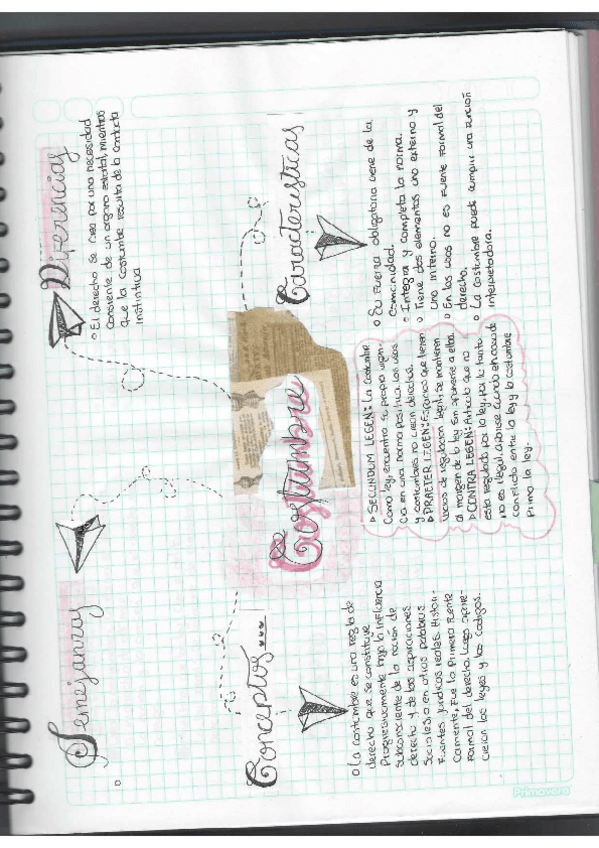 Semejanzas
Diferencias
o El derecho se crea por una necesidad
consiente de un organo estatal, mientras
que la costumbre resulta de la conducta
instintiva
Costumbre
Conceptos...
o La costumbre es una regla de
derecho que se constituye
Progresivamente bajo la influencia
subconsciente de la noción de
derecho y de las aspiraciones
sociales, o en otras palabras
Fuentes jurídicas reales. Histori-
camente, Fue la Primera Fuente
Formal del derecho. Luego apare-
cieron las leyes y los Codigos.
▷ SECUNDUM LEGEN: La costumbre
como ley, encuentra su propia vigen-
cia en una norma positiva. Los usos
y costumbres no crean derechos.
▷ PRAETER LEGEN: Espacios que tienen
vacios de regulacion legal, se mantienen
al margen de la ley sin oponerse a ellas.
▷ CONTRA LEGEN: Articulo que no
esta regulado por la ley, por lo tanto
no es ilegal, aparece cuando en caso de
conflicto entre la ley y la costumbre
Prima la ley.
Caracteristicas
o Su Fuerza obligatoria viene de la
comunidad.
o Integra y completa la norma.
o Tiene dos elementos uno externo y
uno interno.
o En los usos no es fuente Formal del
derecho.
o La costumbre puede cumplir una función
interpretadora.
Primavera